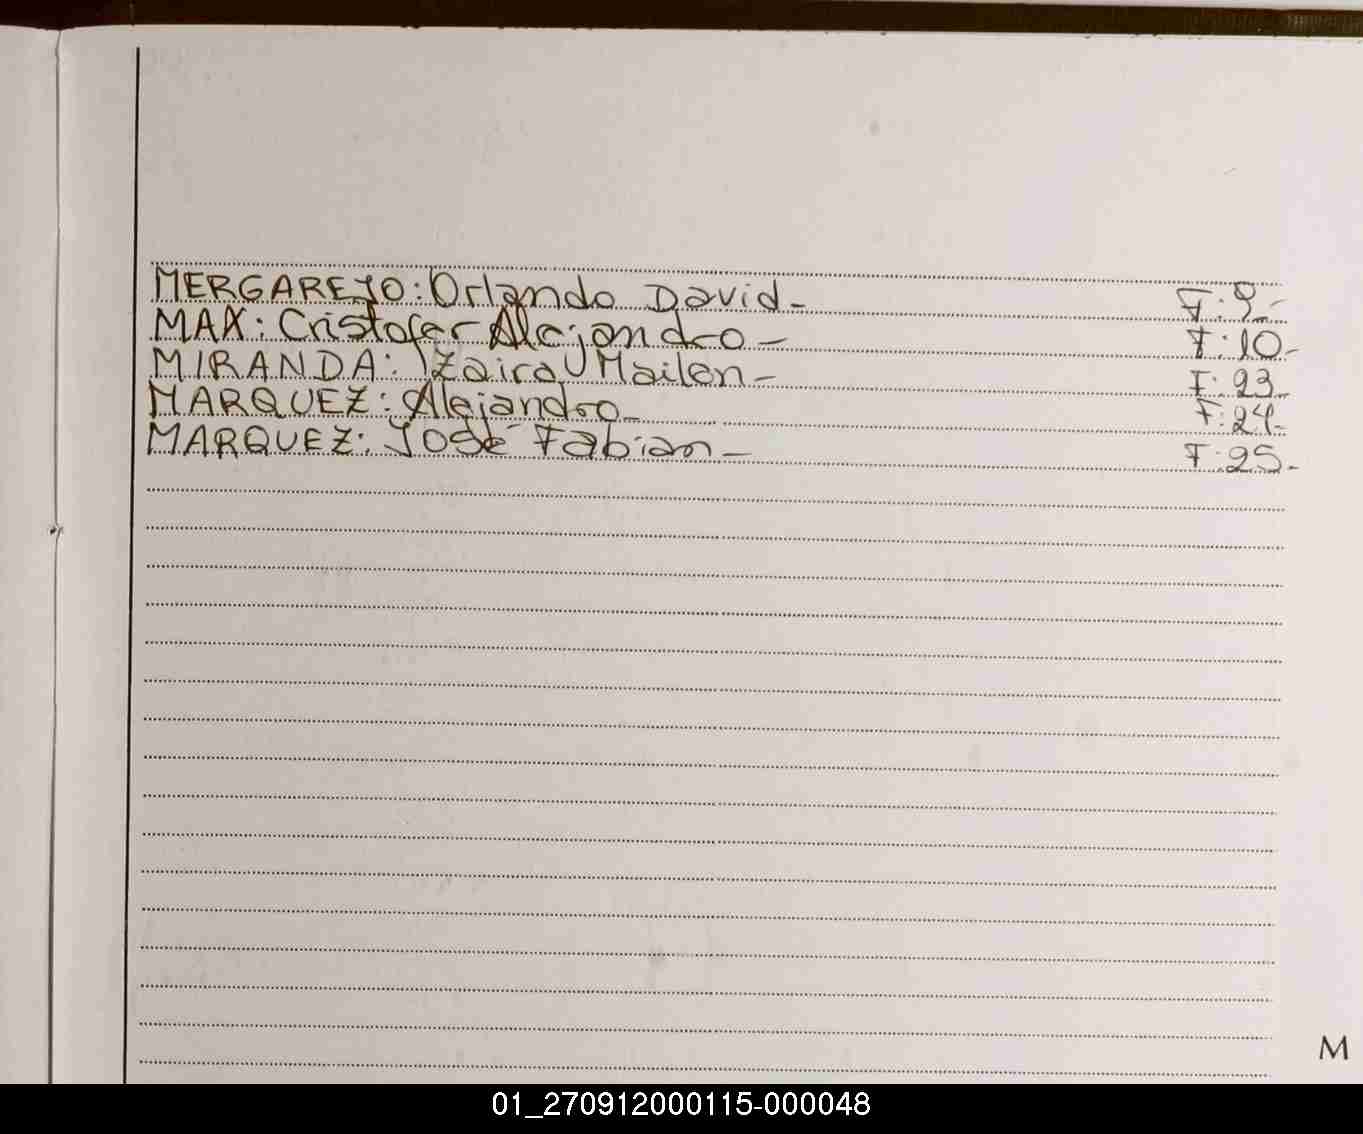 MERGAREJO: Orlando David- F: 9-
MAX: Cristofer Alejandro- F: 10-
MIRANDA: Izaira Mailen- F: 23-
MARQUEZ: Alejandro- F: 24-
MARQUEZ: José Fabian- F: 25-
M
01_270912000115-000048